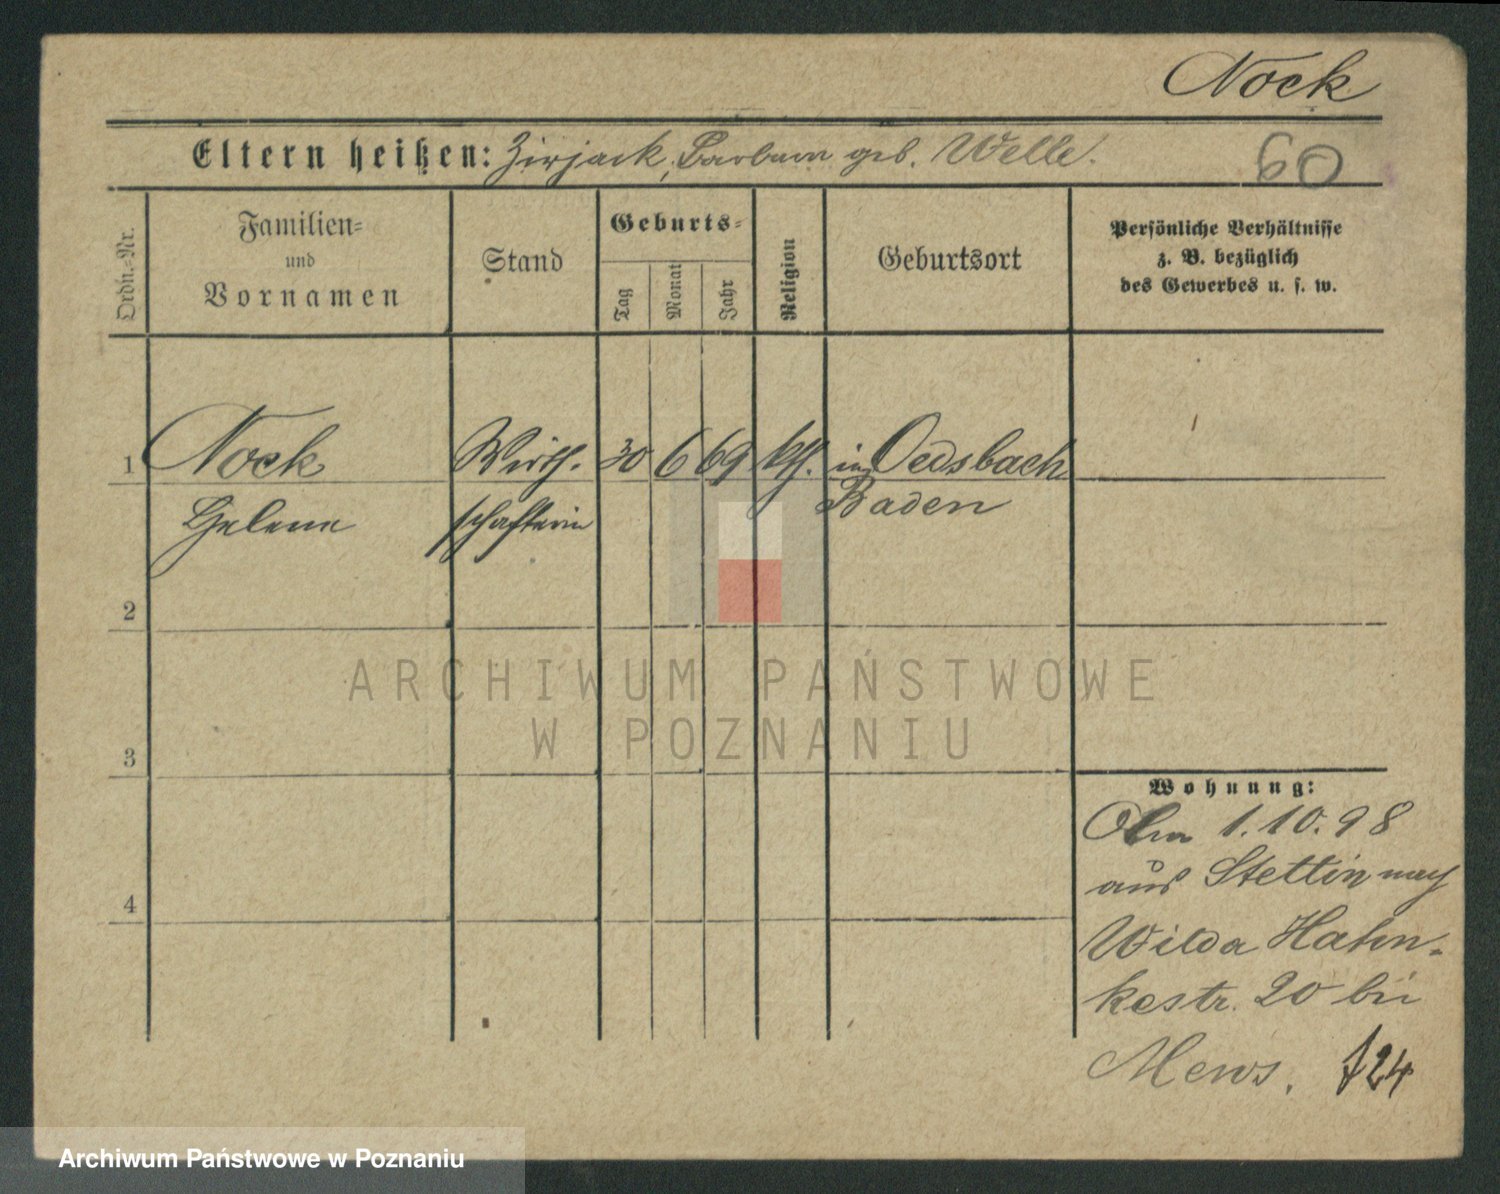 Nock
Eltern heißen: Zirjack, Barbara geb. Welle.
60
Ordn.-Nr.
Familien-
und
Vornamen
Stand
Geburts-
Tag
Monat
Jahr
Religion
Geburtsort
Persönliche Verhältnisse
z. B. bezüglich
des Gewerbes u. s. w.
1 Nock Wirth- 30 6 69 kth. in Oedsbach
Helene schafterin Baden
2
3
4
Wohnung:
1.10.98
aus Stettin nach
Wilda Hahn-
kestr. 20 bei
Mews.
ARCHIWUM PAŃSTWOWE
W POZNANIU
Archiwum Państwowe w Poznaniu